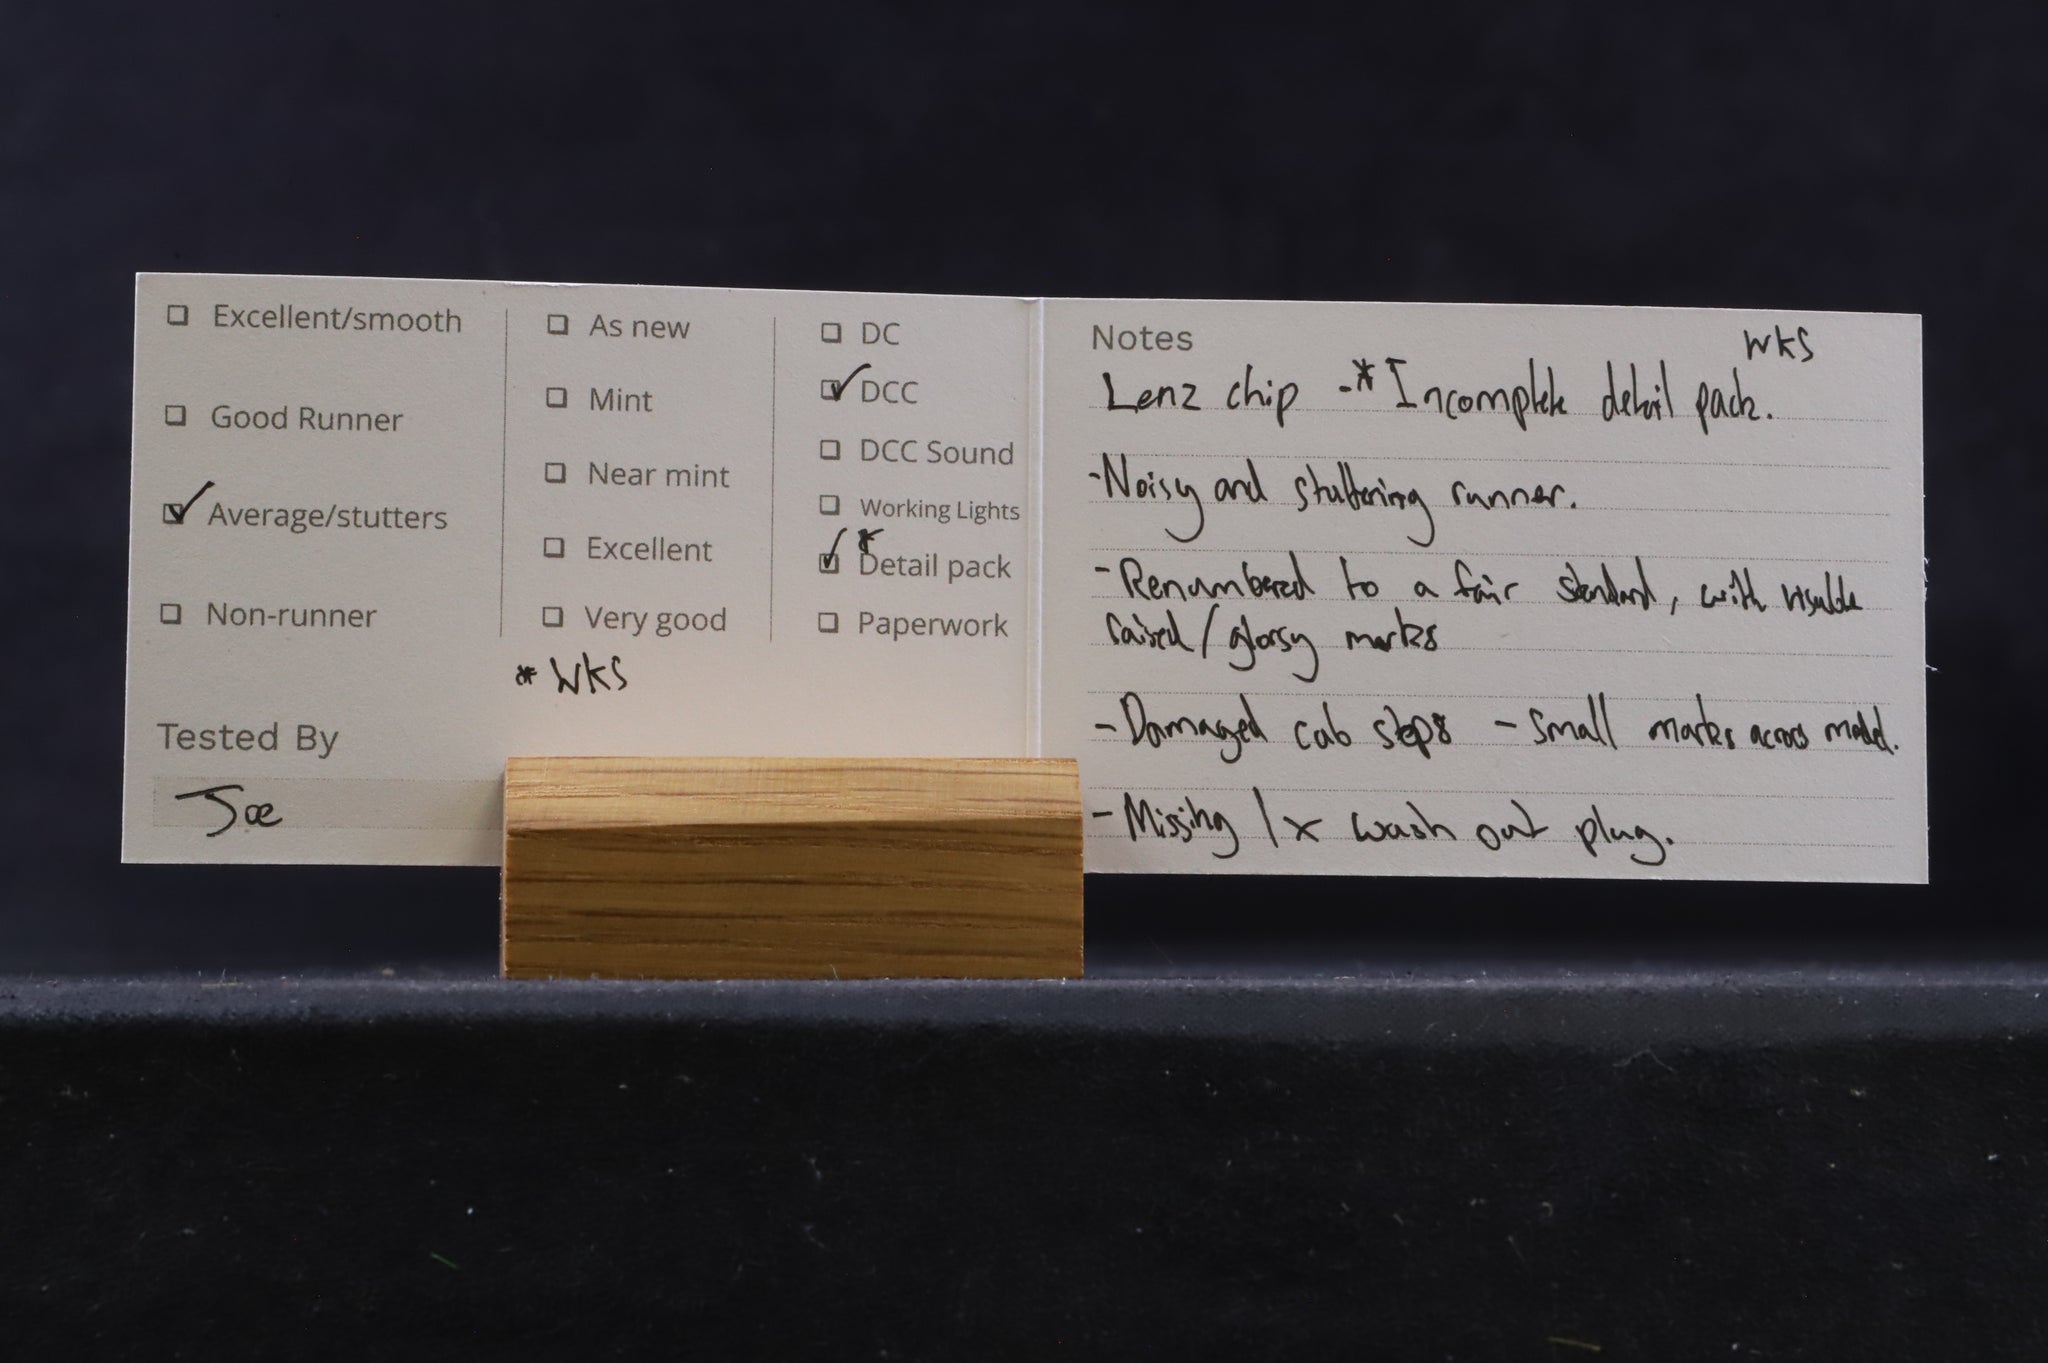 Excellent/smooth
Good Runner
Average/stutters
Non-runner
Tested By
Joe
As new
Mint
Near mint
Excellent
Very good
* WKS
DC
DCC
DCC Sound
Working Lights
*
Detail pack
Paperwork
Notes
WKS
Lenz chip -* Incomplete detail pack.
- Noisy and stuttering runner.
- Renumbered to a fair standard, with visible
raised/glossy marks
- Damaged cab steps - small marks across model.
- Missing 1x wash out plug.